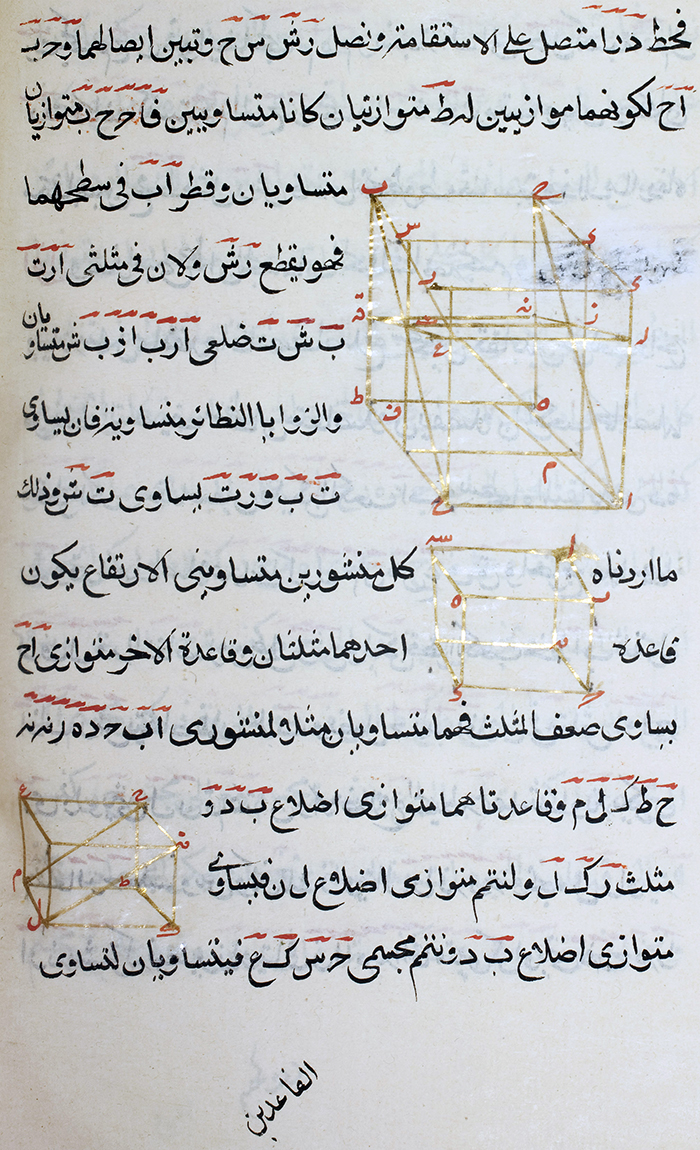 فخط د ر ا متصل على الاستقامة ونصل ر ش س ح وتبين ايصالهما و ح ب
ا ح لكونهما موازيين ل ط متوازيان كانا متساويين ف ا ح ح ب متوازيان
متساويان وقطر ا ب فى سطحهما
فهو يقطع ر ش ولان فى مثلثى ا ر ت
ب ش ت ضلعى ا ر ب ش متساويان
والزوايا النظائر متساوية فان يساوى
ت ب و ر ت يساوى ت ش وذلك
ما اردناه كل منشورين متساويى الارتفاع يكون
قاعدة احدهما مثلثان وقاعدة الاخر متوازى ا ح
يساوى ضعف المثلث فهما متساويان مثلا لمنشورى ا ب ح د ه ر
ح ط ك ل م وقاعدتاهما متوازى اضلاع ب د و
مثلث ر ك ل ولنتم متوازى اضلاع ل ن فيساوى
متوازى اضلاع ب د ونتمم مجسمى ح س ك ع فيتساويان لتساوى
القاعدين